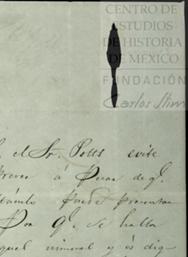 CENTRO DE
ESTUDIOS
DE HISTORIA
DE MÉXICO
FUNDACIÓN
Carlos Slim
el Sr. Potts evite
á de q.
puede presentar
Don q. se halla
mineral y es dig